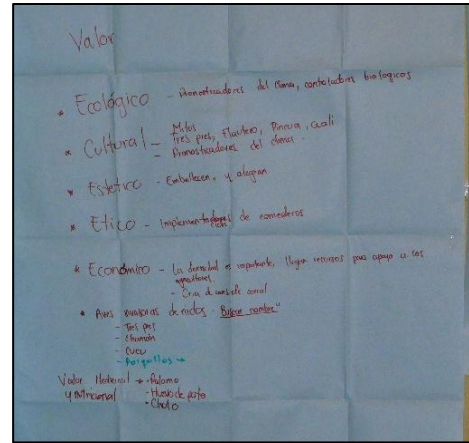 Valor
* Ecológico - Pronosticadores del clima, controladores biologicos
* Cultural - Mitos
Tres pies, Flautero, Pincua, Cuali
- Pronosticadores del clima.
* Estetico - Embellecen, y alegran
* Etico - de comederos
* Económico - La densidad es importante, llegan recursos para apoyo a los
agricultores
- Cria de corral
* Aves de nidos - Buscar nombre"
- Tres pies
-
- Cucu
-
Valor → - Palomo
y nutricional - Huevo de pato
-